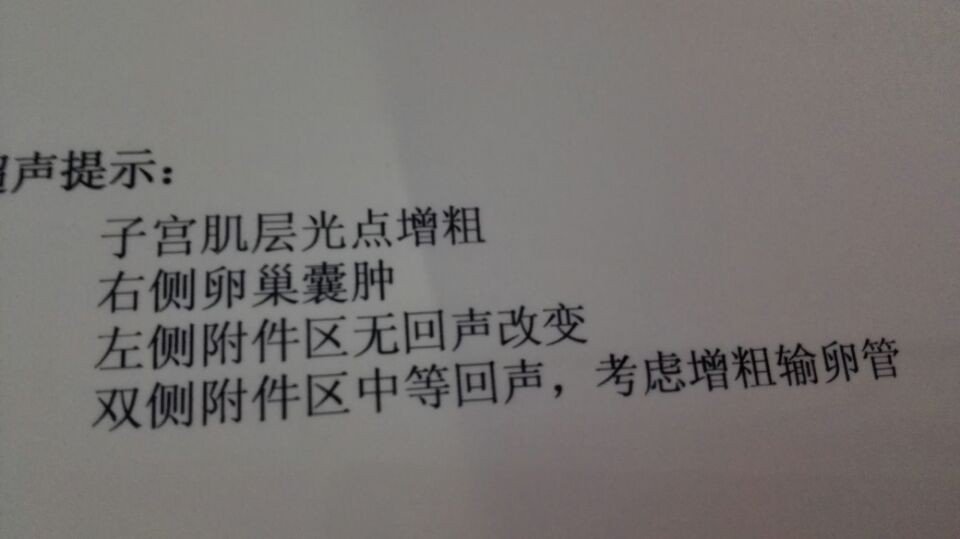 超声提示：
子宫肌层光点增粗
右侧卵巢囊肿
左侧附件区无回声改变
双侧附件区中等回声，考虑增粗输卵管